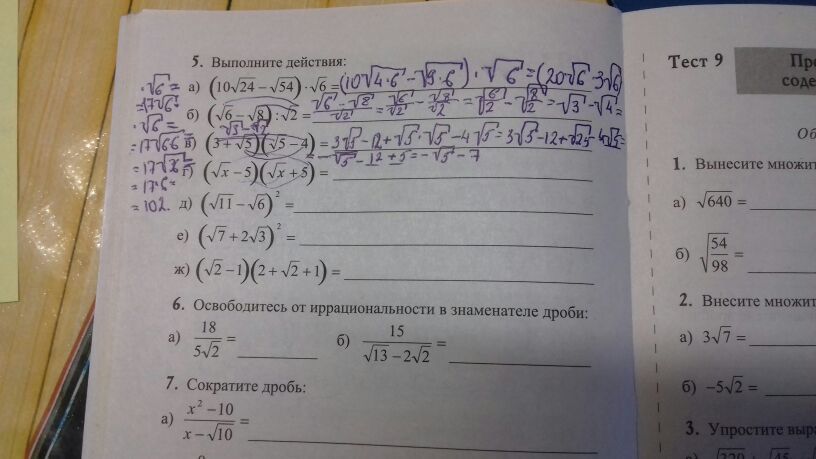 5. Выполните действия:
а) (10√24 − √54) · √6 = (10√4·6 − √9·6) · √6 = (20√6 − 3√6)
· √6 =
= 17√6 ·
· √6 =
= 17√66 =
= 17√36 =
= 17·6 =
= 102.
б) (√6 − √8) : √2 = (√6 − √8)/√2 = √6/√2 − √8/√2 = √(6/2) − √(8/2) = √3 − √4 =
√3 − 2
в) (3 + √5)(√5 − 4) = 3√5 − 12 + √5·√5 − 4√5 = 3√5 − 12 + √25 − 4√5 =
= −√5 − 12 + 5 = −√5 − 7
г) (√x − 5)(√x + 5) =
д) (√11 − √6)² =
е) (√7 + 2√3)² =
ж) (√2 − 1)(2 + √2 + 1) =
6. Освободитесь от иррациональности в знаменателе дроби:
а) 18/(5√2) = б) 15/(√13 − 2√2) =
7. Сократите дробь:
а) (x² − 10)/(x − √10) =
Тест 9
Пре
соде
Об
1. Вынесите множит
а) √640 =
б) √(54/98) =
2. Внесите множит
а) 3√7 =
б) −5√2 =
3. Упростите выра